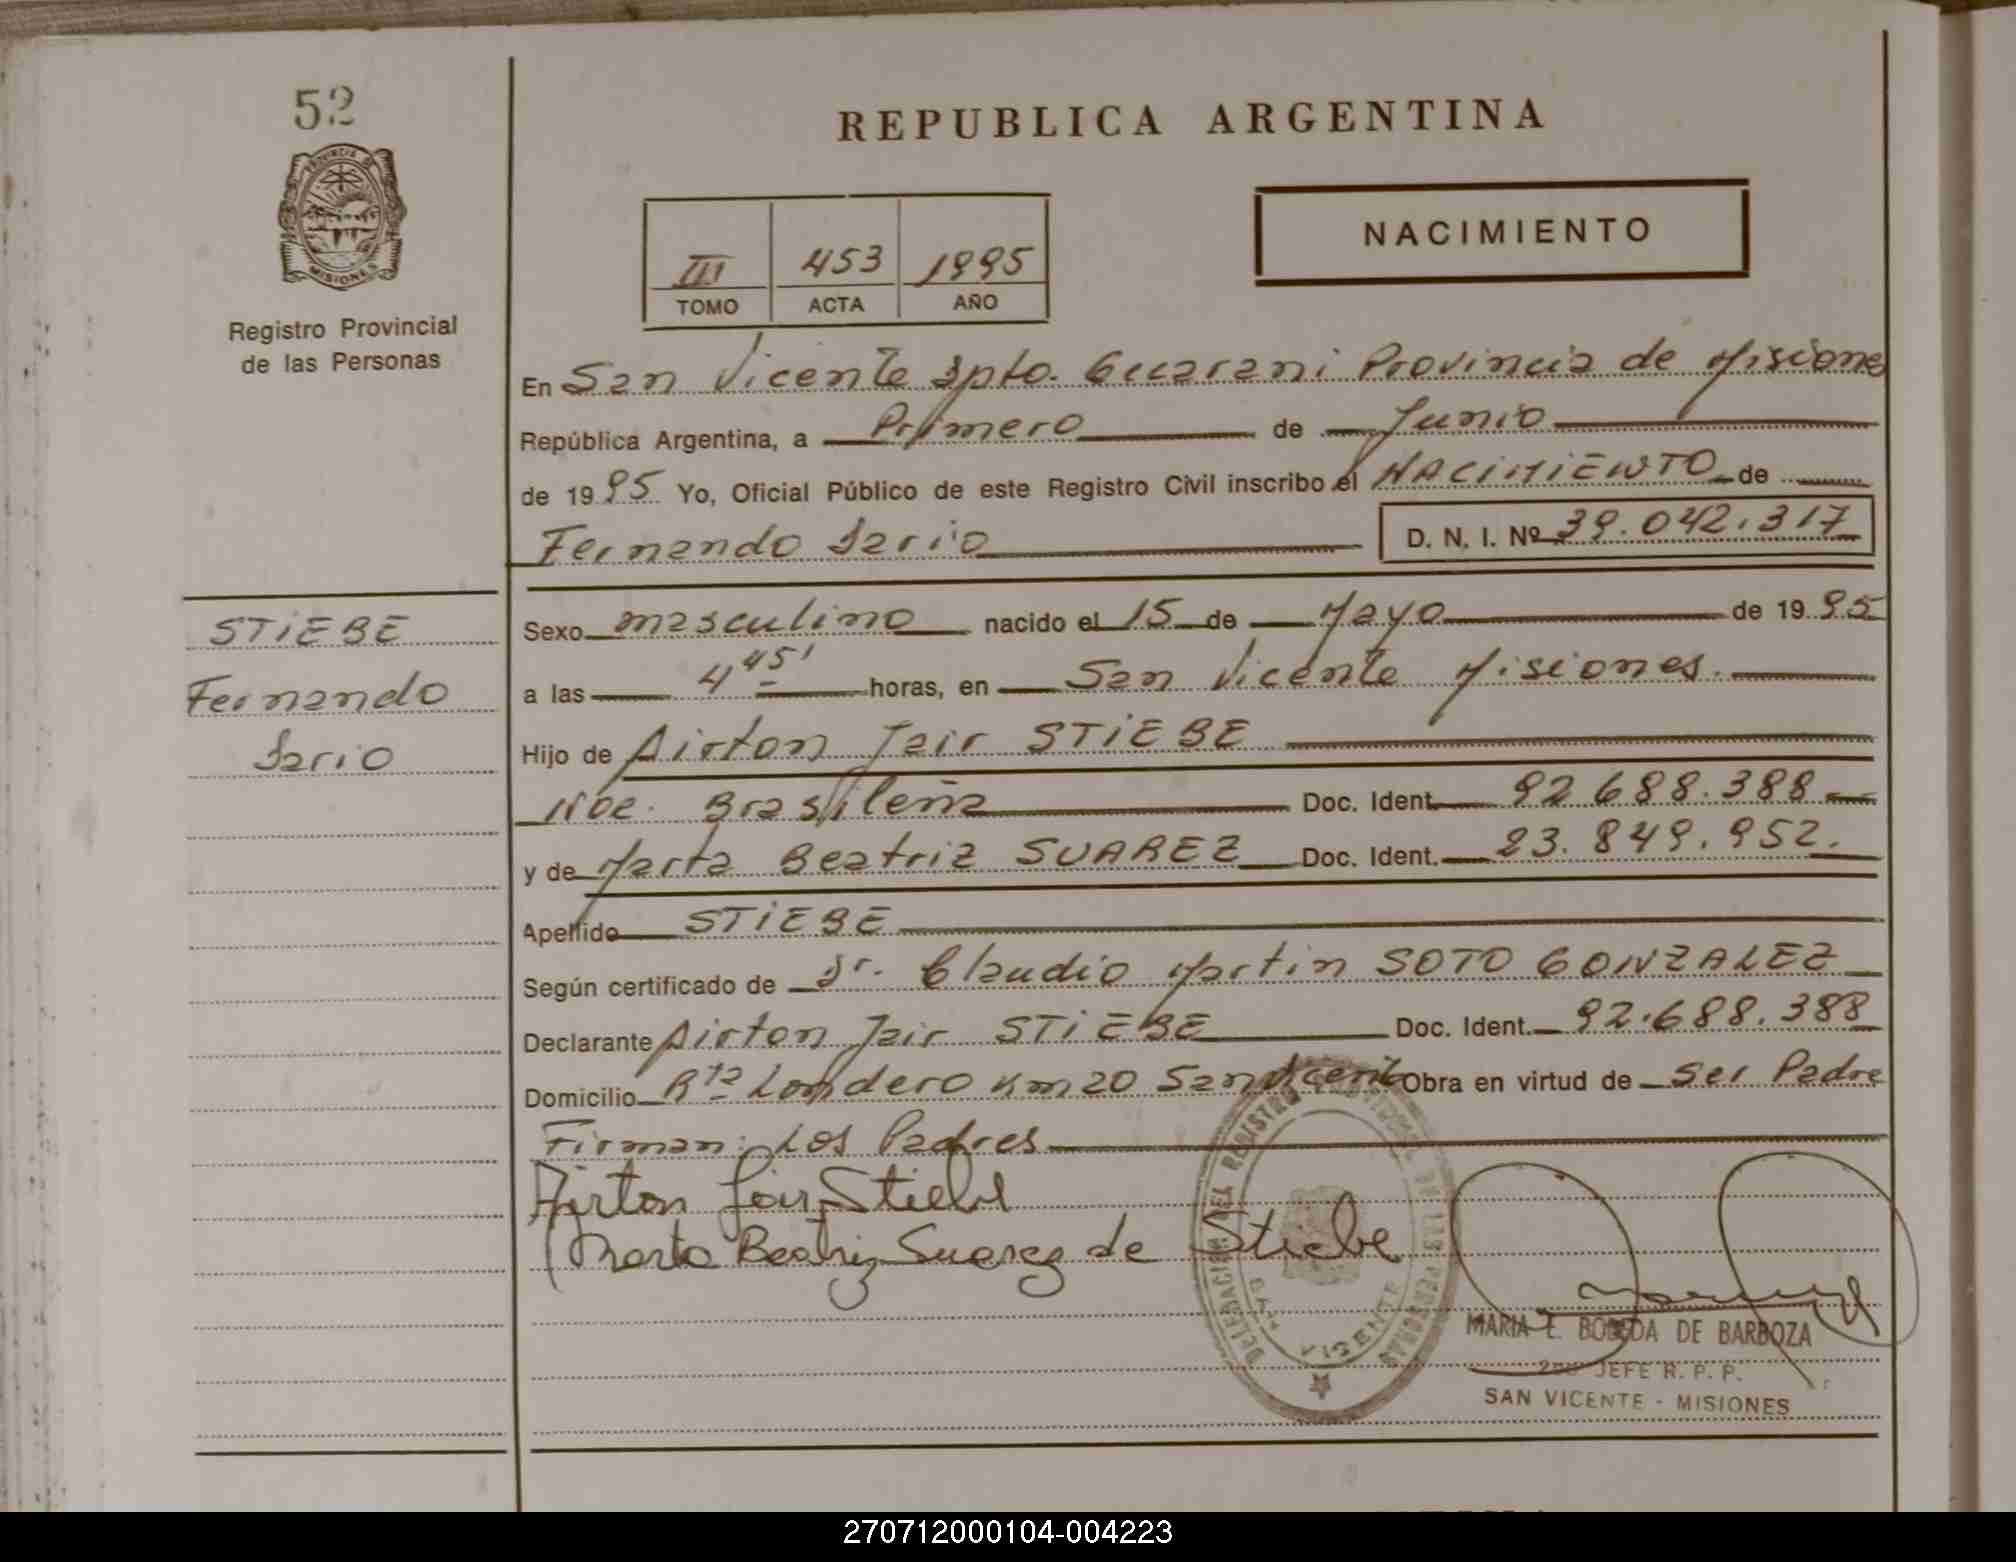 52
PROVINCIA DE
MISIONES
Registro Provincial
de las Personas
REPUBLICA ARGENTINA
III 453 1995
TOMO ACTA AÑO
NACIMIENTO
En San Vicente Dpto. Guarani Provincia de Misiones
República Argentina, a Primero de Junio
de 1995 Yo, Oficial Público de este Registro Civil inscribo el NACIMIENTO de
Fernando Dario D. N. I. Nº 39.042.317
STIEBE
Fernando
Dario
Sexo masculino nacido el 15 de Mayo de 1995
a las 4 45' horas, en San Vicente Misiones.
Hijo de Airton Jair STIEBE
Nac. Brasileña Doc. Ident. 92.688.388
y de Marta Beatriz SUAREZ Doc. Ident. 23.849.952.
Apellido STIEBE
Según certificado de Dr. Claudio Martin SOTO GONZALEZ
Declarante Airton Jair STIEBE Doc. Ident. 92.688.388
Domicilio Rta Londero Km 20 San Vicente Obra en virtud de ser Padre
Firman: Los Padres
Airton Jair Stiebe
Marta Beatriz Suarez de Stiebe
DELEGACION DEL REGISTRO PROVINCIAL DE LAS PERSONAS
SAN VICENTE
MARIA E. BOBEDA DE BARBOZA
JEFE R. P. P.
SAN VICENTE - MISIONES
270712000104-004223